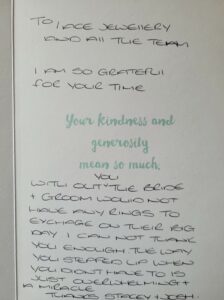 TO LACE JEWELLERY
AND ALL THE TEAM
I AM SO GRATEFUL
FOR YOUR TIME
Your kindness and
generosity
mean so much.
YOU
WITH OUT THE BRIDE
+ GROOM WOULD NOT
HAVE ANY RINGS TO
EXCHAGE ON THEIR BIG
DAY I CAN NOT THANK
YOU ENOUGH THE WAY
YOU STEPPED UP WHEN
YOU DIDNT HAVE TO IS
JUST OVERWHELMING +
A MIRACLE
THANKS STACEY